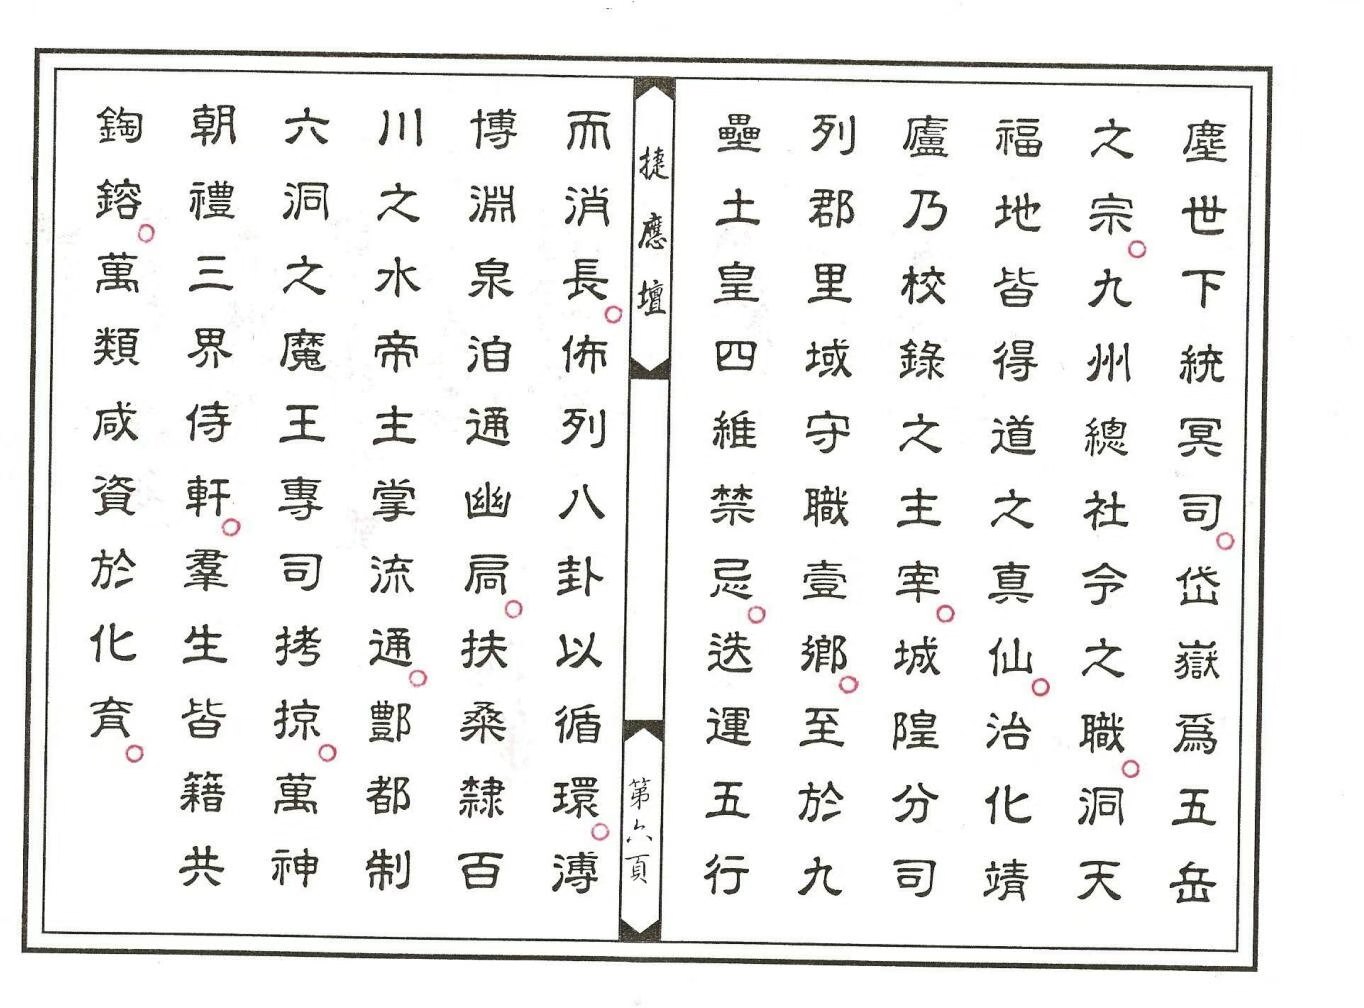 塵世下統冥司○岱嶽爲五岳
之宗○九州總社令之職○洞天
福地皆得道之真仙○治化靖
廬乃校錄之主宰○城隍分司
列郡里域守職壹鄉○至於九
壘土皇四維禁忌○迭運五行
捷應壇
第六頁
而消長○佈列八卦以循環○溥
博淵泉洎通幽扃○扶桑隸百
川之水帝主掌流通○酆都制
六洞之魔王專司拷掠○萬神
朝禮三界侍軒○羣生皆籍共
鋾鎔○萬類咸資於化育○